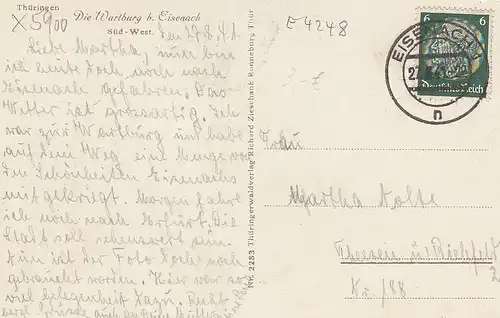 Thüringen
Die Wartburg b. Eisenach
Süd-West.
X5900
E4248
den 27.8.41.
Liebe Martha, nun bin
ich heute doch noch nach
Eisenach gefahren. Das
Wetter ist grossartig. Ich
war zur Wartburg und habe
auf dem Weg eine Menge von
den Schönheiten Eisenachs
mitgekriegt. Morgen fahre
ich noch nach Erfurt. Die
Stadt soll sehenswert sein.
Nun ist der Foto doch noch
gebraucht worden. Hier war so
viel Gelegenheit dazu. Recht
Grüsse auch an Deine Mutter
Nr. 2283 Thüringerwaldverlag Richard Zieschank Ronneburg Thür
EISENACH
n
6 6
Deutsches Reich
Frau
Martha Nolte
Theesen ü/Bielefeld
2
Nr. 188